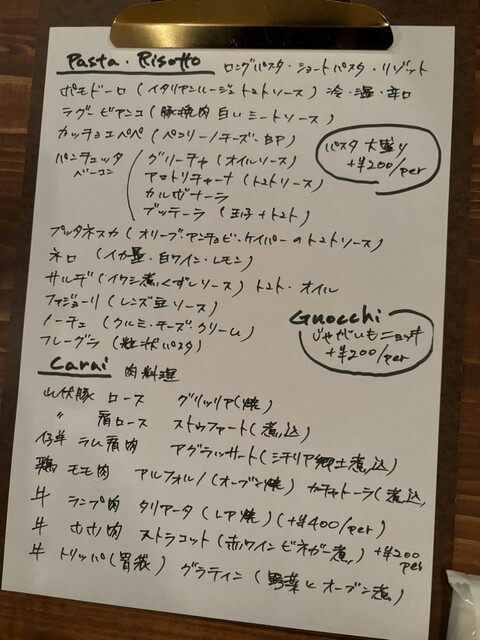 Pasta・Risotto ロングパスタ・ショートパスタ・リゾット
ポモドーロ (イタリアンベージュトマトソース) 冷・温・辛口
ラグービアンコ (豚挽肉白いミートソース)
カッチョエペペ (ペコリーノチーズ・
パンチェッタ
ベーコン
グリーチャ (オイルソース)
アマトリチャーナ (トマトソース)
カルボナーラ
ブッテーラ (玉子+トマト)
パスタ大盛り
+¥200/per
プッタネスカ (オリーブ・アンチョビ・ケイパーのトマトソース)
ネロ (イカ墨・白ワイン・レモン)
サルデ (イワシ煮くずしソース) トマト・オイル
ファジョーリ (レンズ豆ソース)
ノーチェ (クルミ・チーズ・クリーム)
フレーグラ (粒状パスタ)
Gnocchi
じゃがいもニョッキ
+¥200/per
Carni 肉料理
山伏豚 ロース グリッリア(焼)
〃 肩ロース ストゥファート(煮込)
仔羊 ラム肩肉 アグラッサート(シチリア郷土煮込)
鶏 モモ肉 アルフォルノ(オーブン焼) カチャトーラ(煮込)
牛 ランプ肉 タリアータ(レア焼)(+¥400/per)
牛 ホホ肉 ストラコット(赤ワインビネガー煮) +¥200 per
牛 トリッパ(胃袋) グラティン (野菜とオーブン煮)